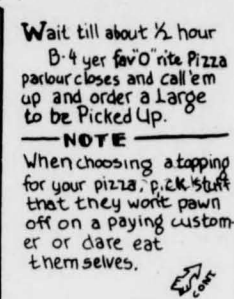 Wait till about ½ hour
B-4 yer fav"O"rite Pizza
parlour closes and call 'em
up and order a Large
to be Picked Up.
NOTE
When choosing a topping
for your pizza, pick stuff
that they wont pawn
off on a paying custom-
er or dare eat
themselves.
CONT